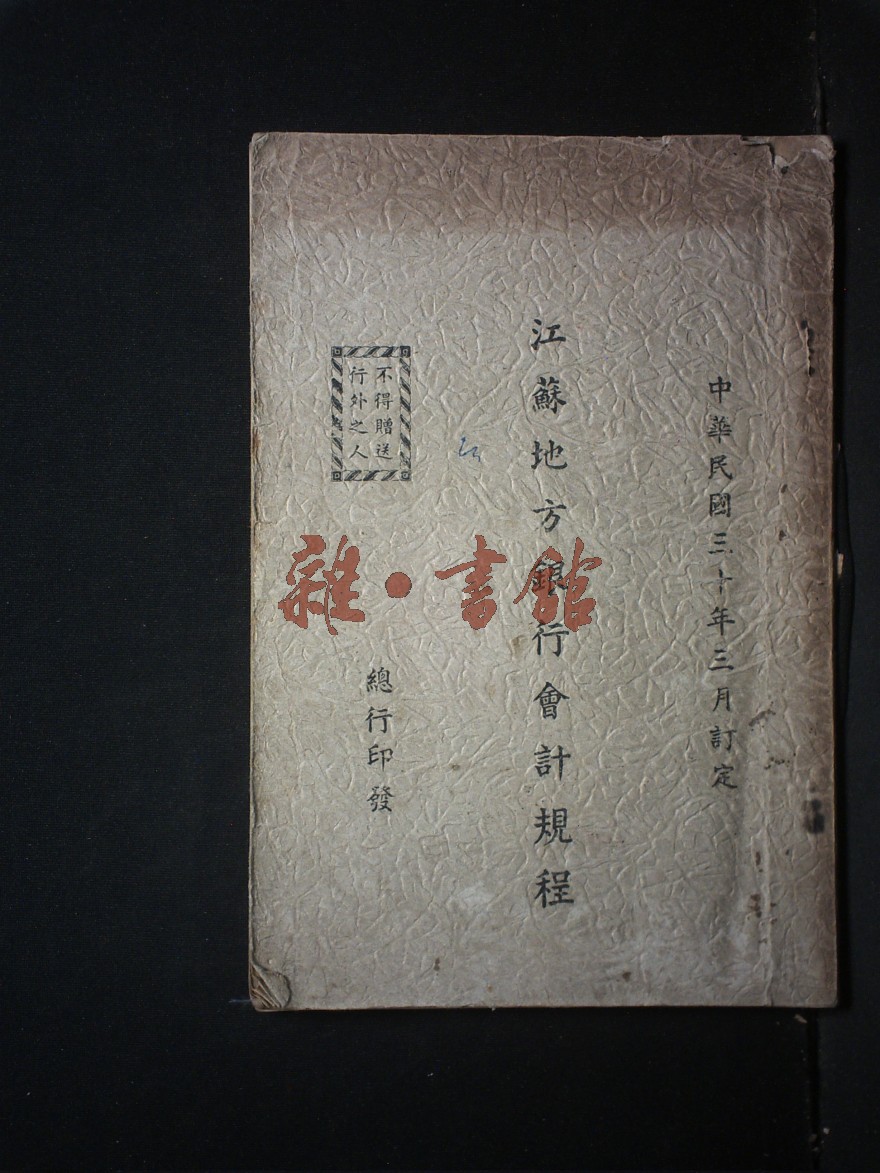 中華民國三十年三月訂定
江蘇地方銀行會計規程
不得贈送
行外之人
總行印發
雜·書館